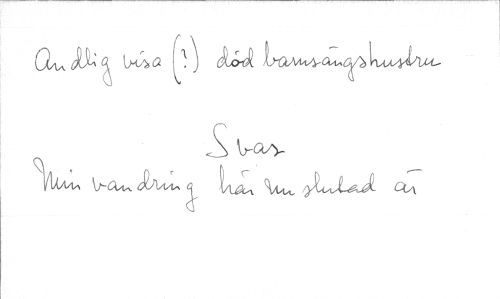 Andlig visa (?) död barnsängshustru
Svar
Min vandring här nu slutad är